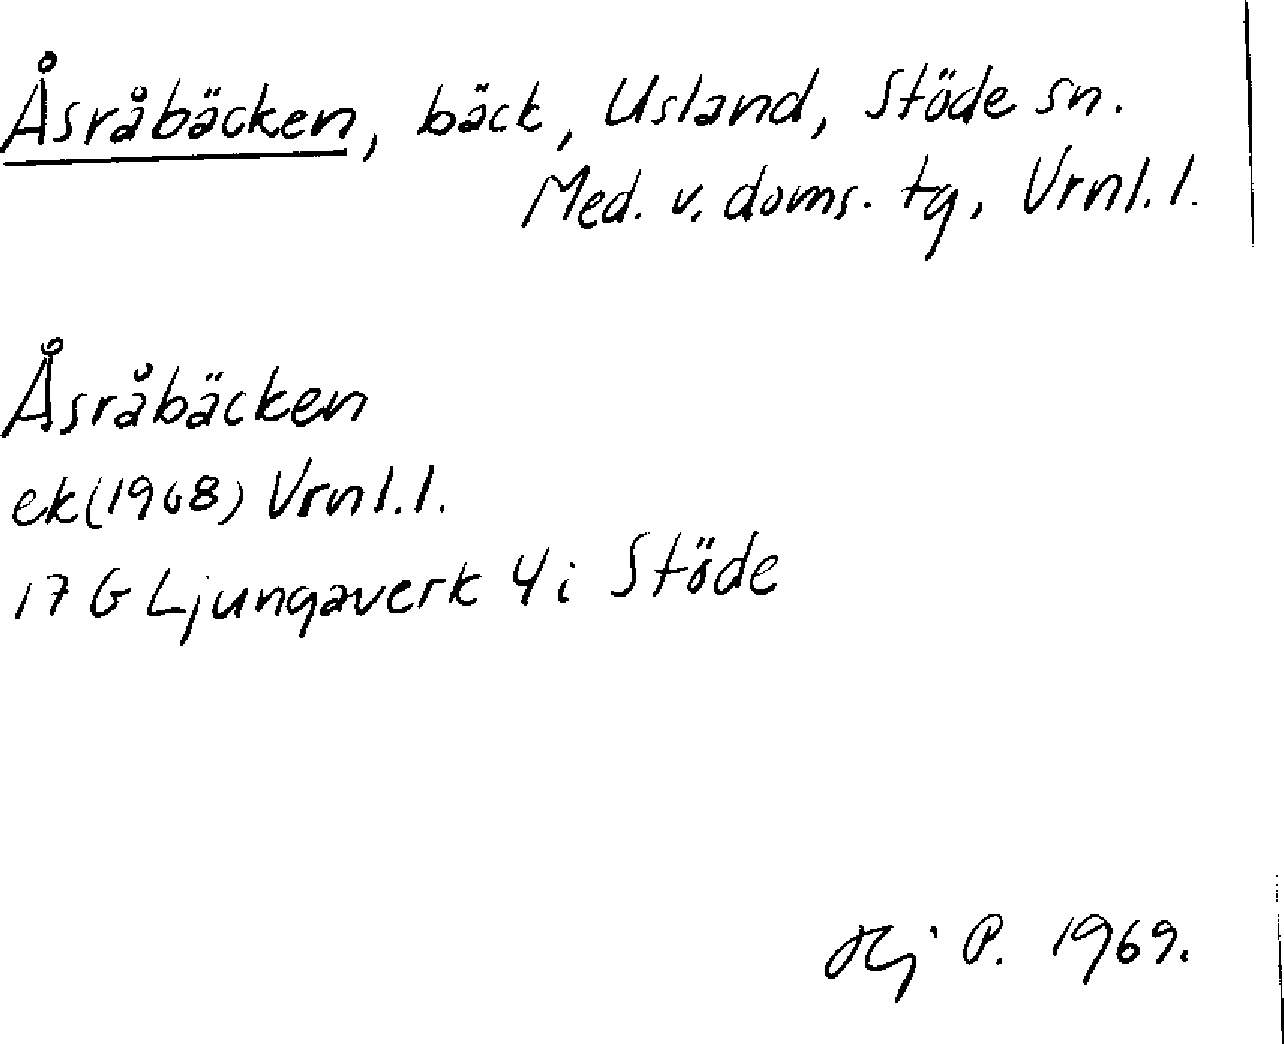 Åsråbäcken, bäck, Usland, Stöde sn.
Med. v. doms. tg, Vrnl. l.
Åsråbäcken
ek (1968) Vrnl. l.
17 G Ljungaverk 4 i Stöde
Hj P. 1969.